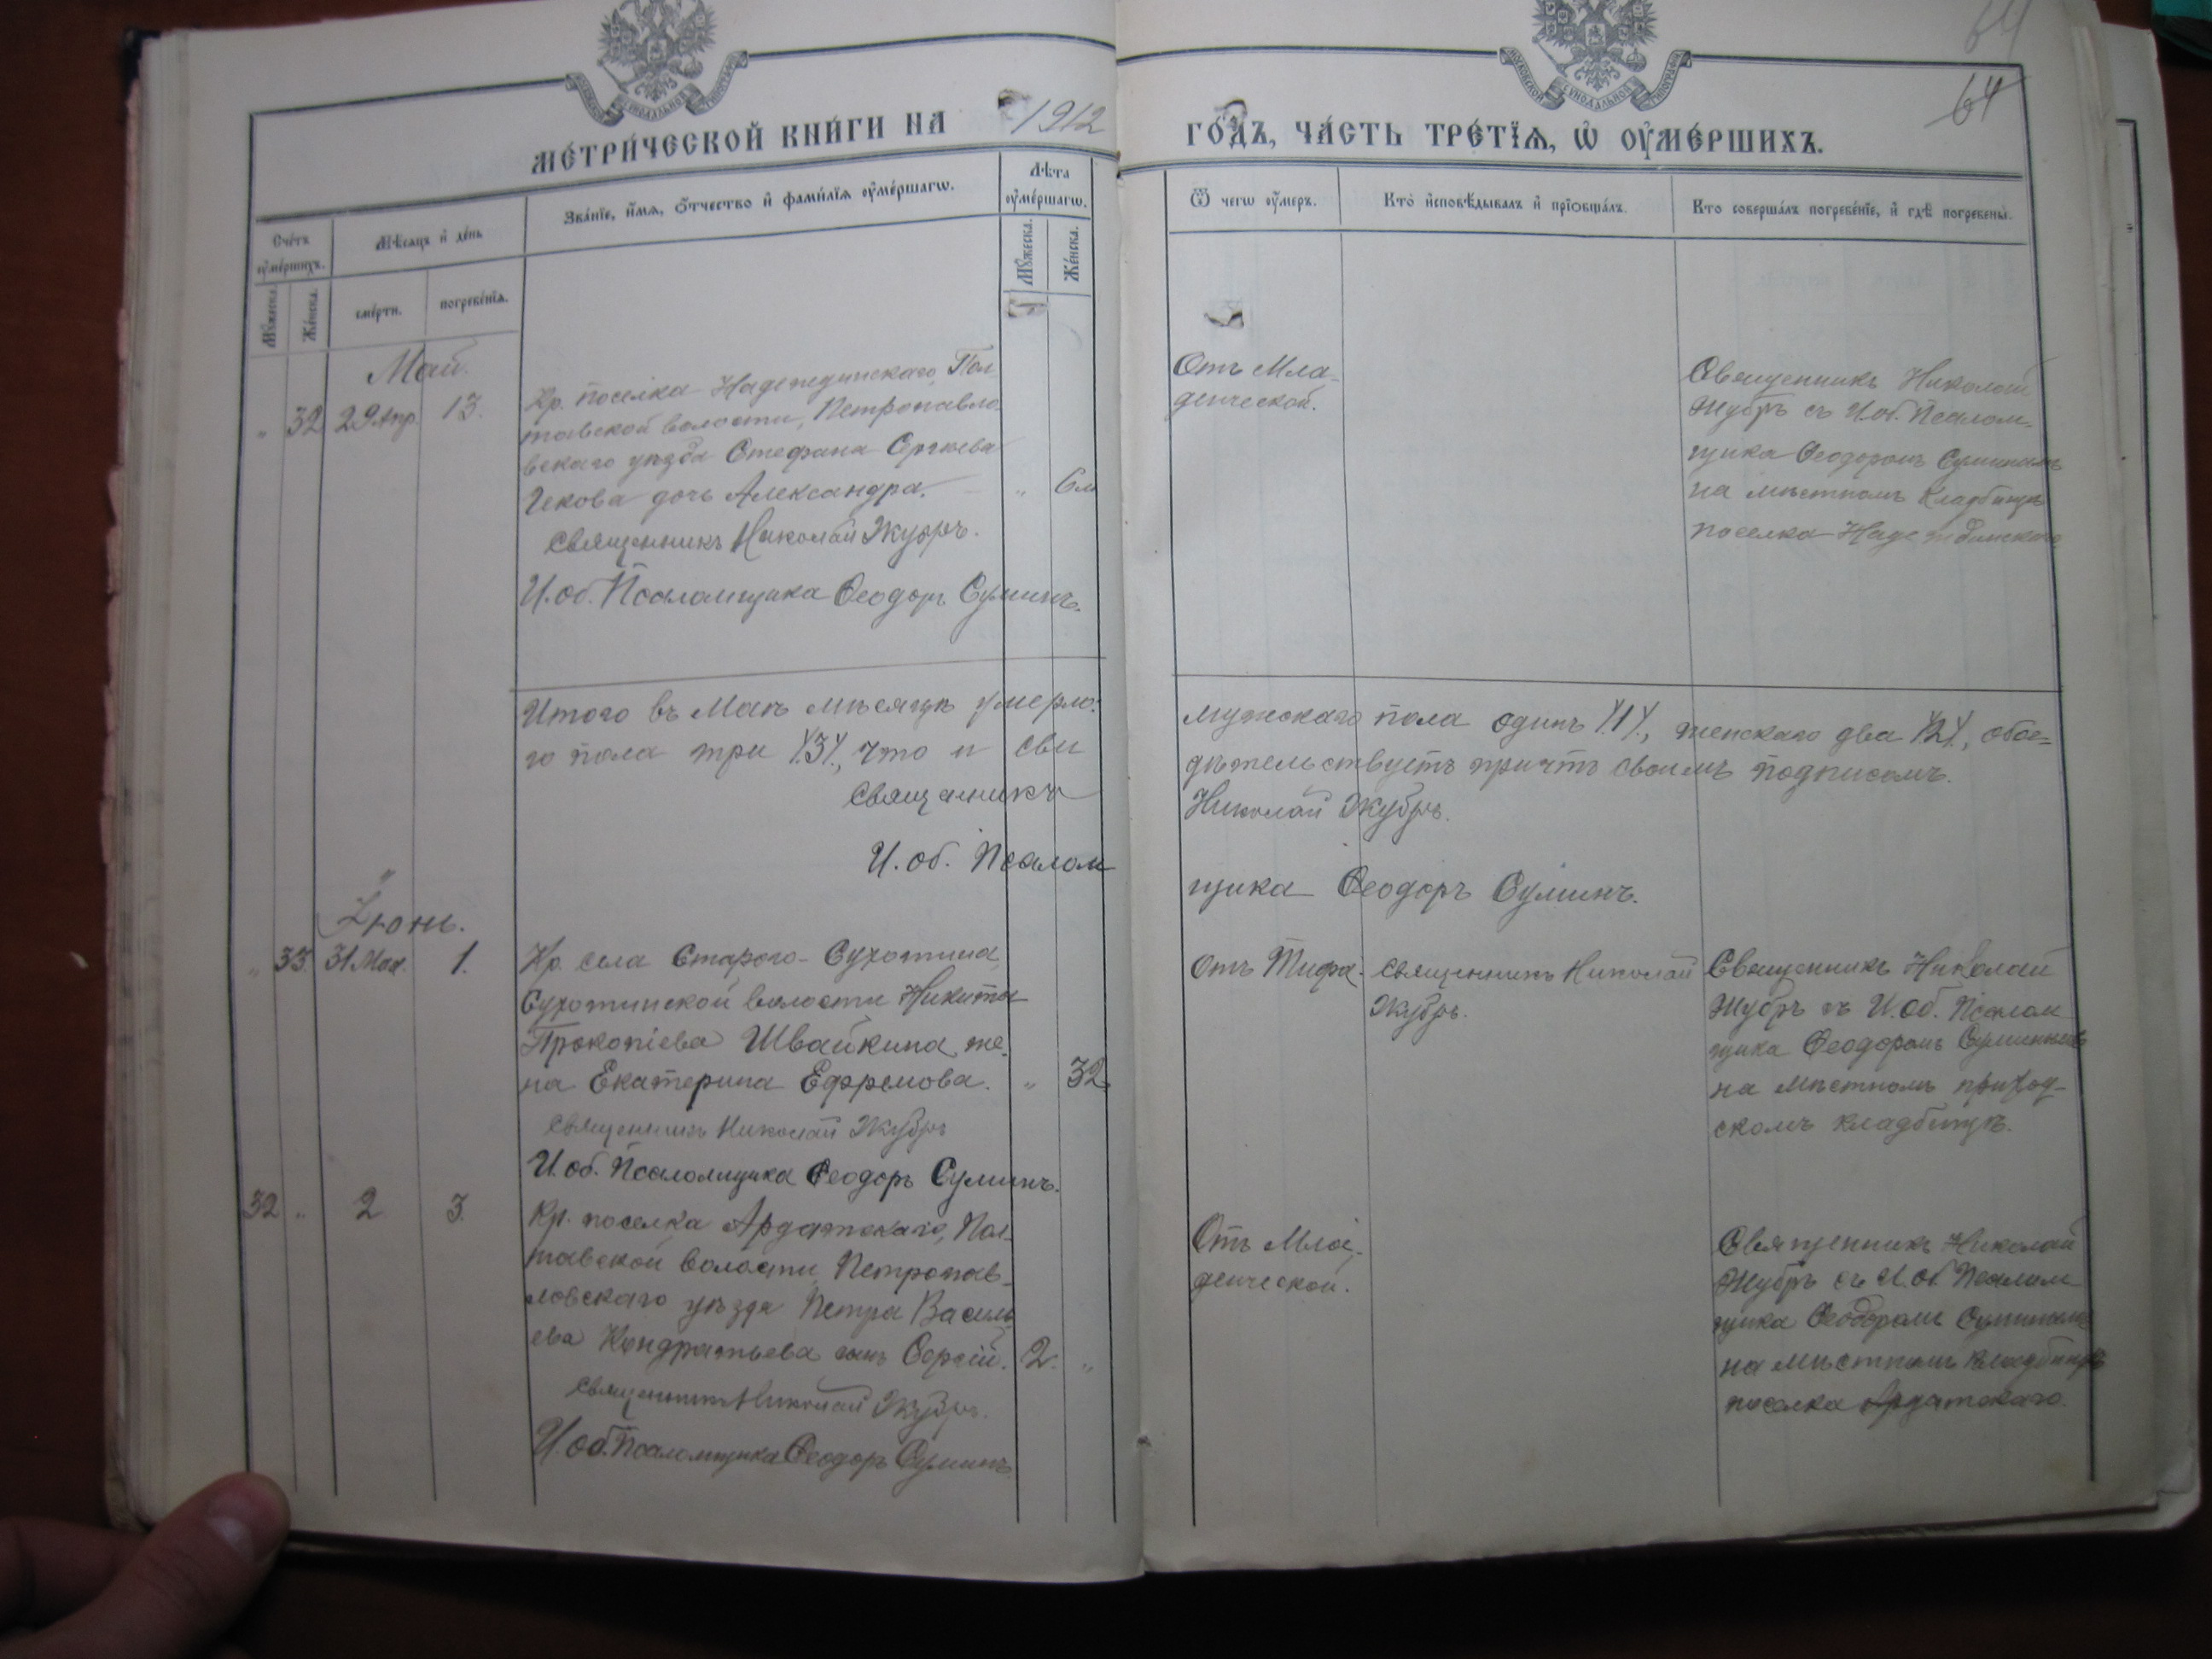 64
64
МЕТРИ́ЧЕСКОЙ КНИ́ГИ НА 1912
ГО́ДЪ, ЧА́СТЬ ТРЕ́ТЇѦ, Ѡ ОУ҆МЕ́РШИХЪ.
Сче́тъ оу҆ме́ршихъ.
Мѣ́сяцъ и҆ де́нь
Зва́нїе, и҆́мѧ, ѻ҆́тчество и҆ фами́лїѧ оу҆ме́ршагѡ.
Лѣ́та оу҆ме́ршагѡ.
Ѿ чегѡ̀ оу҆́меръ.
Кто̀ и҆сповѣ́дывалъ и҆ прїѻбща́лъ.
Кто соверша́лъ погребе́нїе, и҆ гдѣ̀ погребены̀.
Мꙋ́жеска.
Же́нска.
сме́рти.
погребе́нїѧ.
Мꙋ́жеска.
Же́нска.
Май.
" 32 29 Апр. 13.
Кр. поселка Надеждинскаго, Пол-
тавской волости, Петропавло-
вскаго уѣзда Стефана Сергѣева
Чекова дочь Александра. " 6 м
Священникъ Николай Жубръ.
И. об. Псаломщика Ѳеодоръ Суминъ.
Отъ Мла-
денческой.
Священникъ Николай
Жубръ съ И. об. Псалом-
щика Ѳеодоромъ Суминымъ
на мѣстномъ кладбищѣ
поселка Надеждинскаго
Итого въ Маѣ мѣсяцѣ умерло: мужскаго пола одинъ /1/, женскаго два /2/, обое-
го пола три /3/, что и сви дѣтельствуетъ причтъ своимъ подписомъ.
Священникъ Николай Жубръ.
И. об. Псалом щика Ѳеодоръ Суминъ.
Іюнь.
" 33. 31 Мая. 1.
Кр. села Старого-Сухотина,
Сухотинской волости Никиты
Прокопіева Швайкина же-
на Екатерина Ефремова. " 32
Священникъ Николай Жубръ
И. об. Псаломщика Ѳеодоръ Суминъ.
Отъ Тифа.
Священникъ Николай
Жубръ.
Священникъ Николай
Жубръ съ И. об. Псалом
щика Ѳеодоромъ Суминымъ
на мѣстномъ приход-
скомъ кладбищѣ.
32 " 2 3.
Кр. поселка Ардатскаго, Пол-
тавской волости, Петропав-
ловскаго уѣзда Петра Василь
ева Кондратьева сынъ Сергій. 2. "
Священникъ Николай Жубръ.
И. об. Псаломщика Ѳеодоръ Суминъ.
Отъ Мла-
денческой.
Священникъ Николай
Жубръ съ И. об. Псалом
щика Ѳеодоромъ Суминымъ
на мѣстномъ кладбищѣ
поселка Ардатскаго.